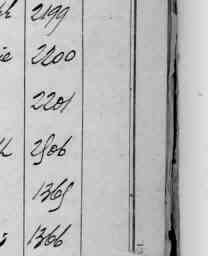 2199
2200
2201
2506
1365
1366